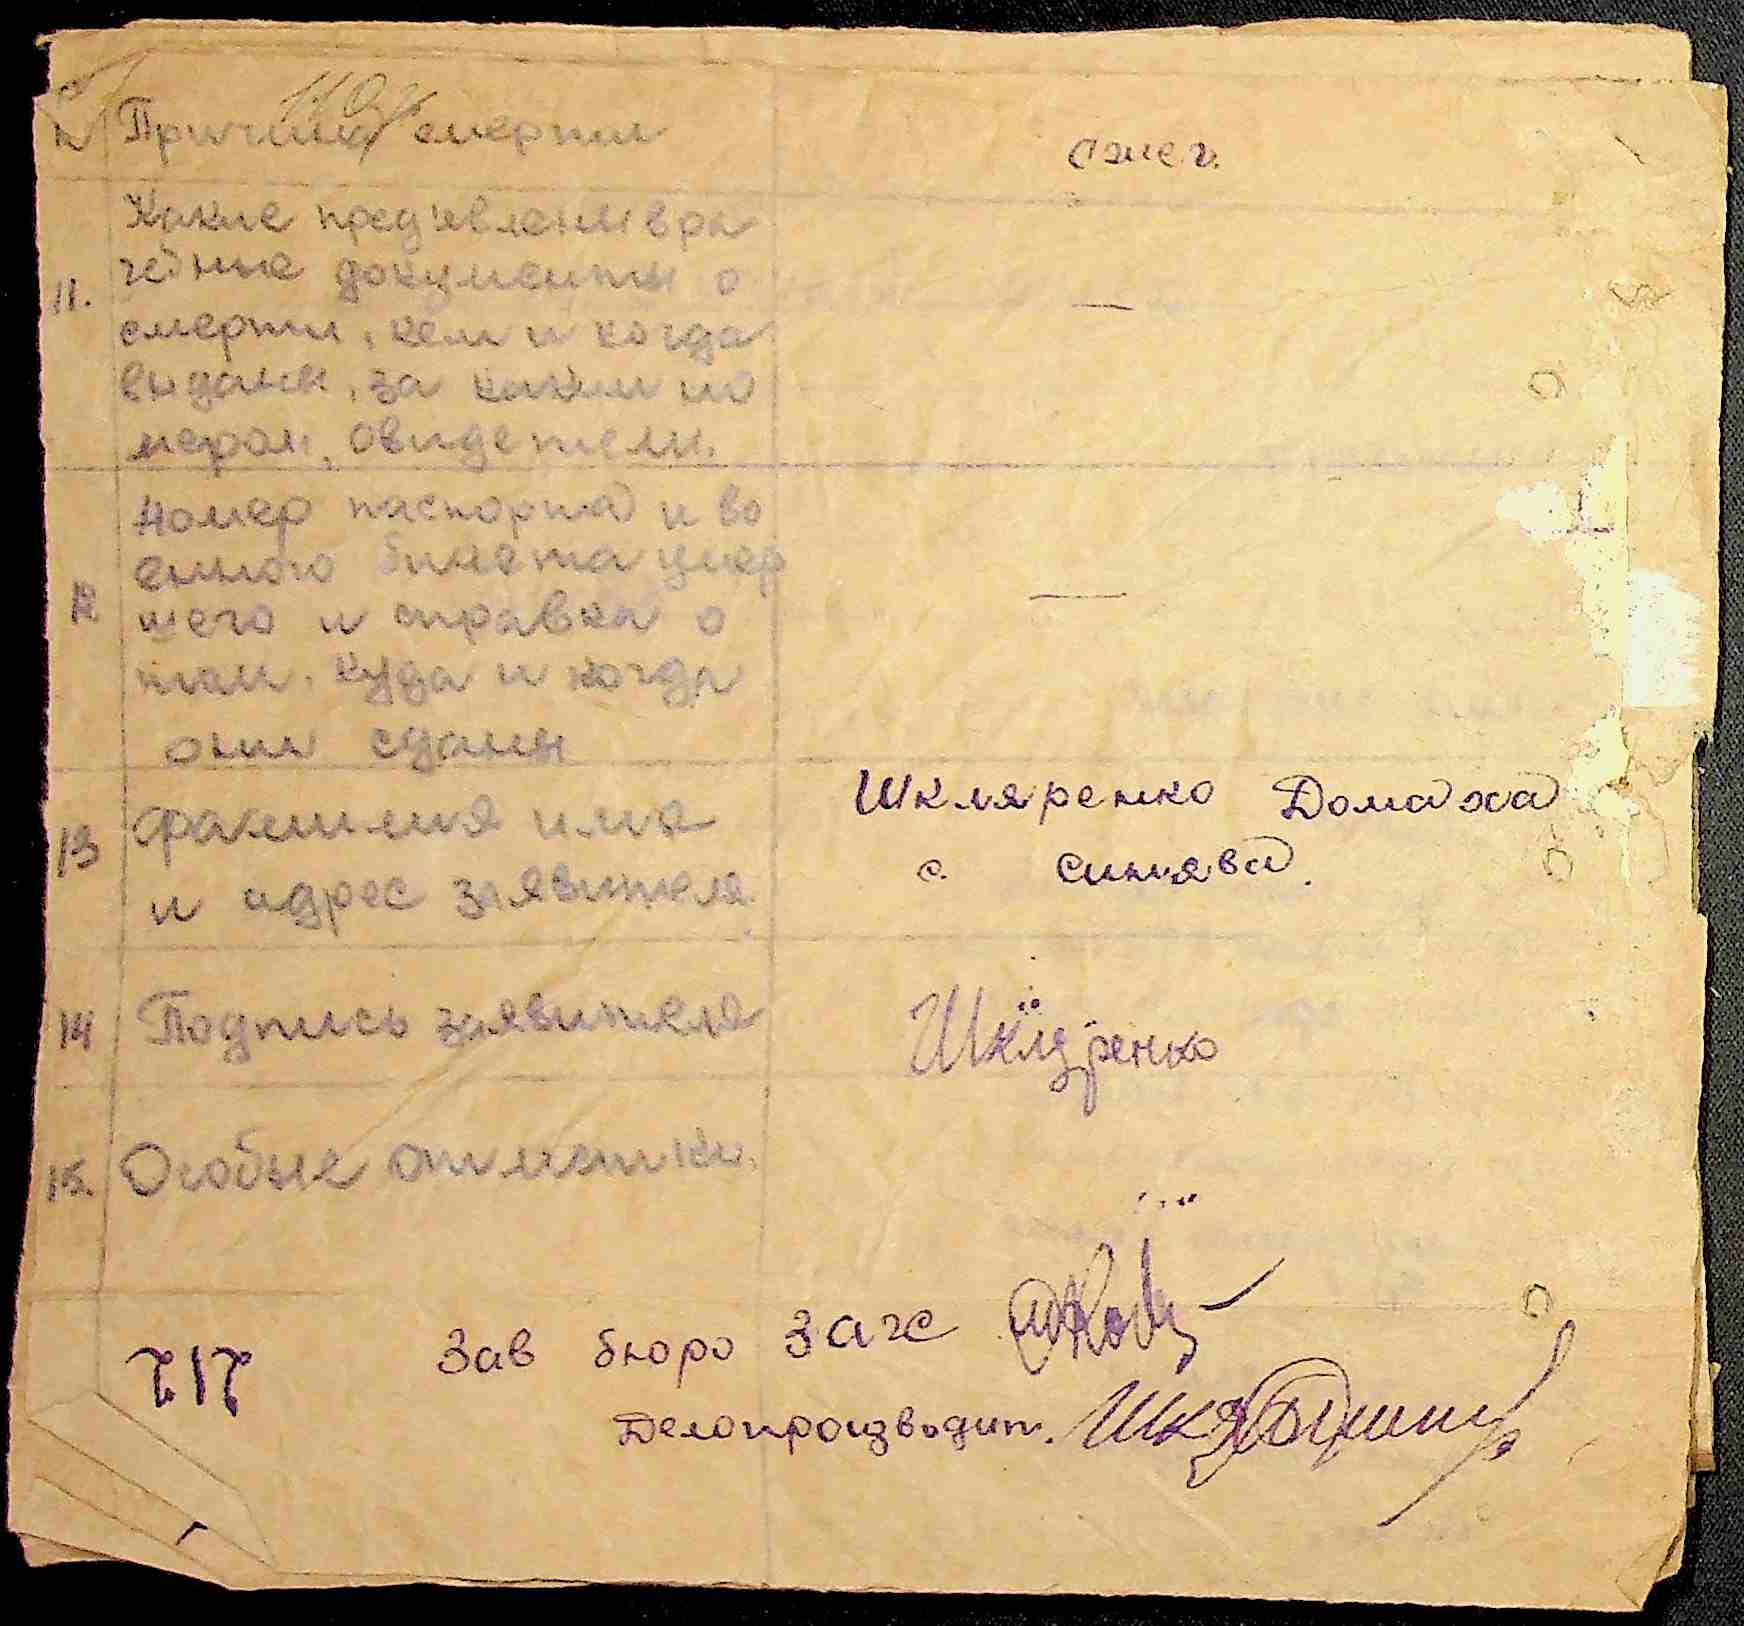 Причина смерти
сжег.
11. Какие пред'явлены вра
чебные документы о
смерти, кем и когда
выданы, за каким но
мером, свидетели.
—
12 Номер паспорта и во
енного билета умер
шего и справка о
том, куда и когда
они сданы
—
13 Фамилия имя
и адрес заявителя.
Шкляренко Домаха
с. синява.
14 Подпись заявителя
Шкляренко
15. Особые отметки.
Зав бюро загс
Делопроизводит.
212